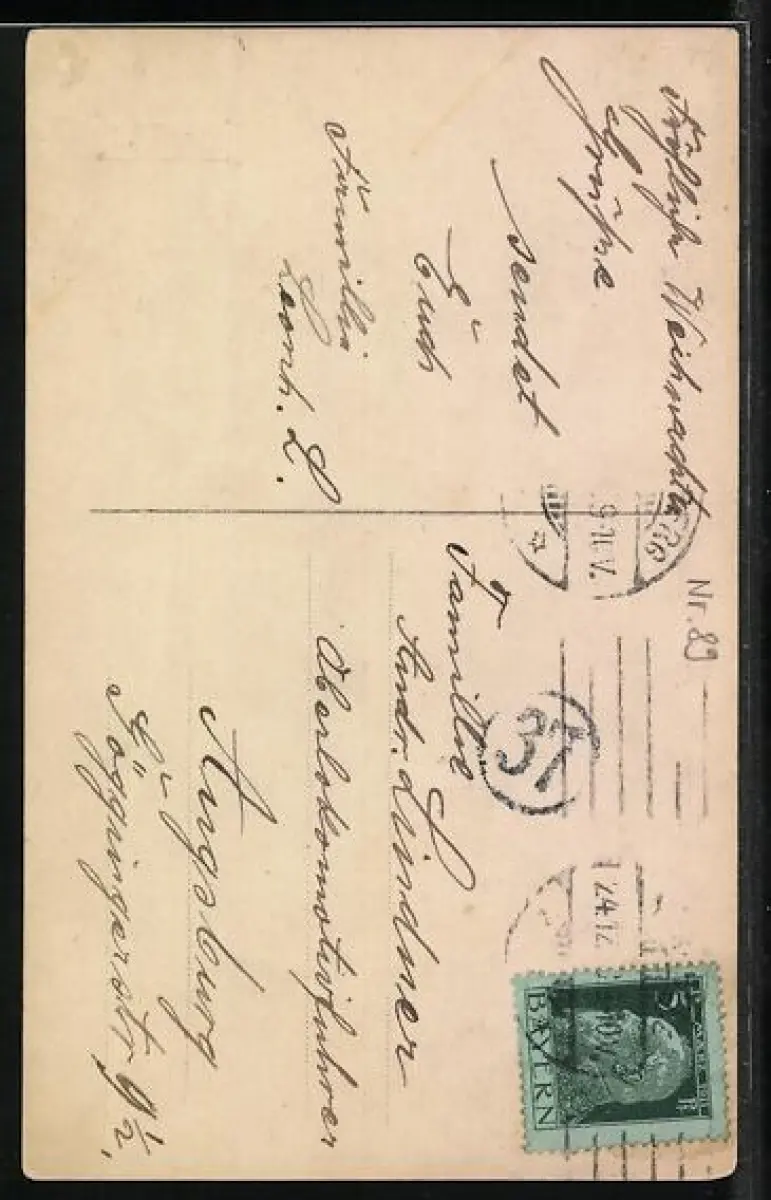 Fröhliche Weihnachten
&
Grüße
sendet
Euch
Familie
Leonh. L.
Nr. 89
Familie
Andr. Lindner
Oberlokomotivführer
Augsburg
Göggingerstr. 9½,
37
9-10 V.
24.12
BAYERN
5